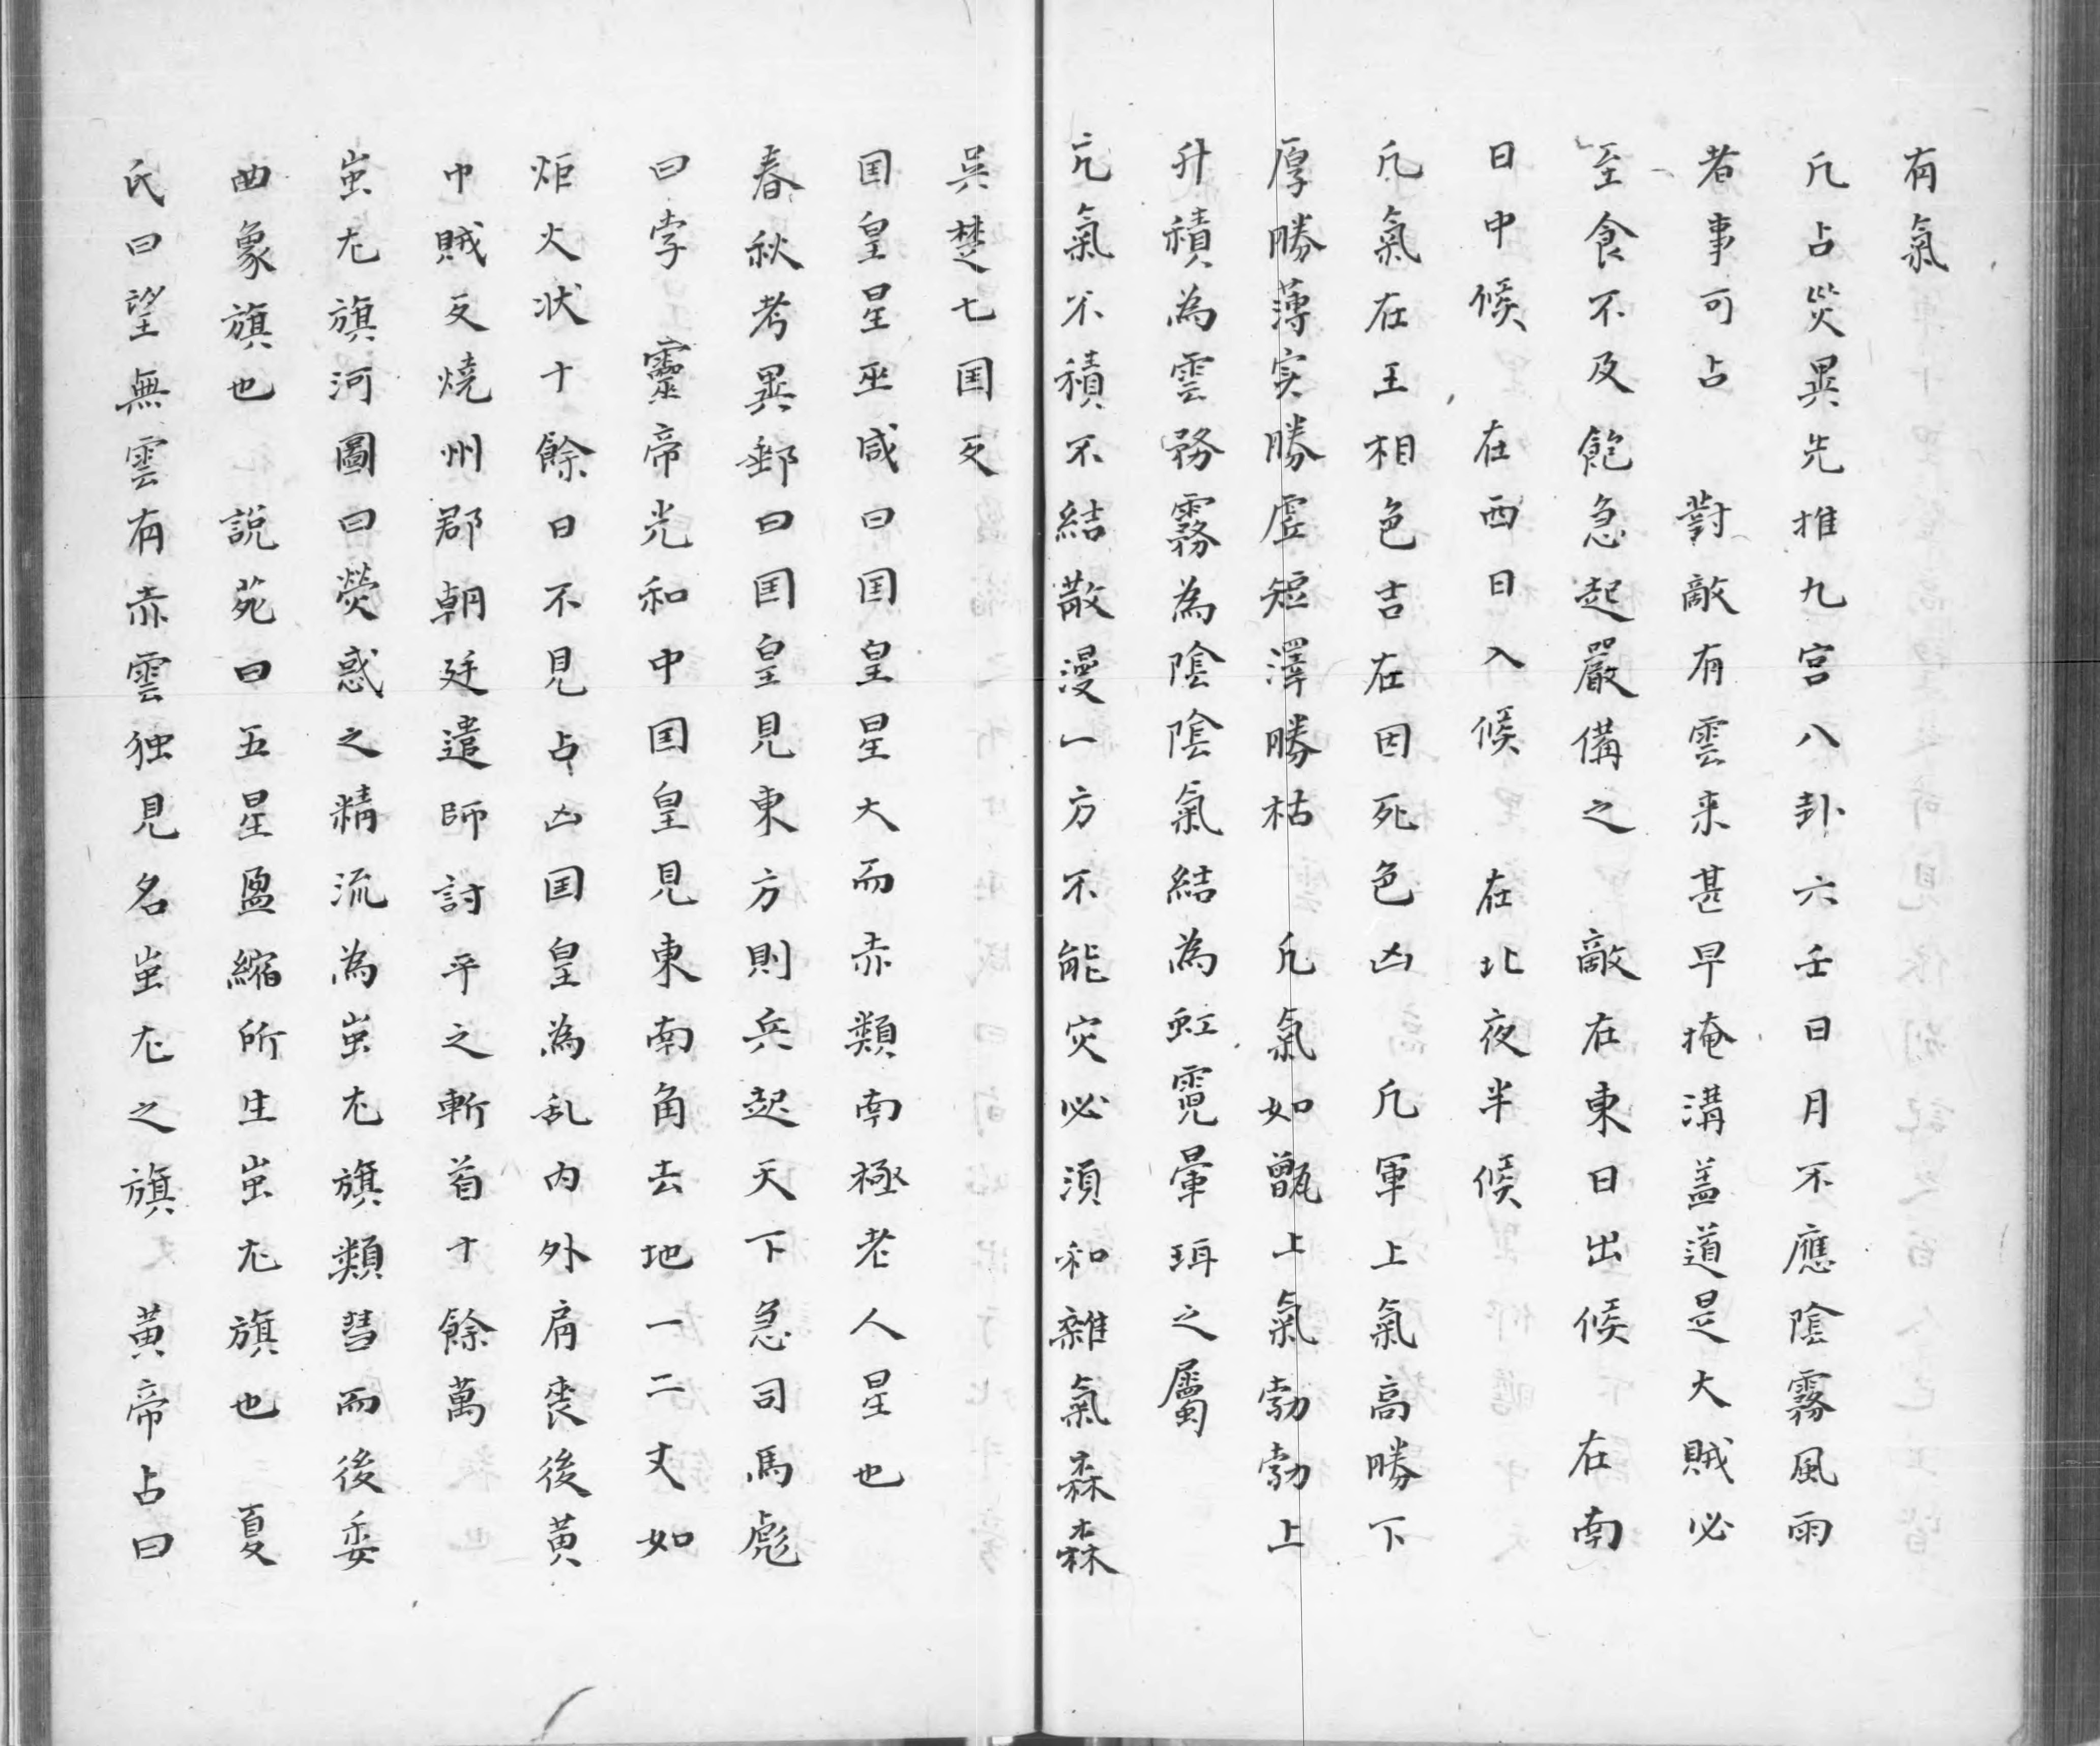 有氣
凡占災異先推九宮八卦六壬日月不應陰霧風雨
者事可占　對敵有雲来甚早掩溝盖道是大賊必
至食不及飽急起嚴備之　敵在東日出候　在南
日中候　在西日入候　在北夜半候
凡氣在王相色吉在因死色凶　凡軍上氣高勝下
厚勝薄实勝虚短澤勝枯　凡氣如甑上氣勃勃上
升積為雲務霧為陰陰氣結為虹霓暈珥之屬
凢氣不積不結散漫一方不能灾必須和雜氣森森
吳楚七国反
国皇星巫咸曰国皇星大而赤類南極老人星也
春秋考異郵曰国皇見東方則兵起天下急司馬彪
曰孛　靈帝光和中国皇見東南角去地一二丈如
炬火状十餘日不見占凶国皇為乱内外肩喪後黄
巾賊反燒州郡朝廷遣師討平之斬首十餘萬
蚩尤旗河圖曰熒惑之精流為蚩尤旗類彗而後委
曲象旗也　說苑曰五星盈縮所生蚩尤旗也　夏
氏曰望無雲有赤雲独見名蚩尤之旗　黃帝占曰